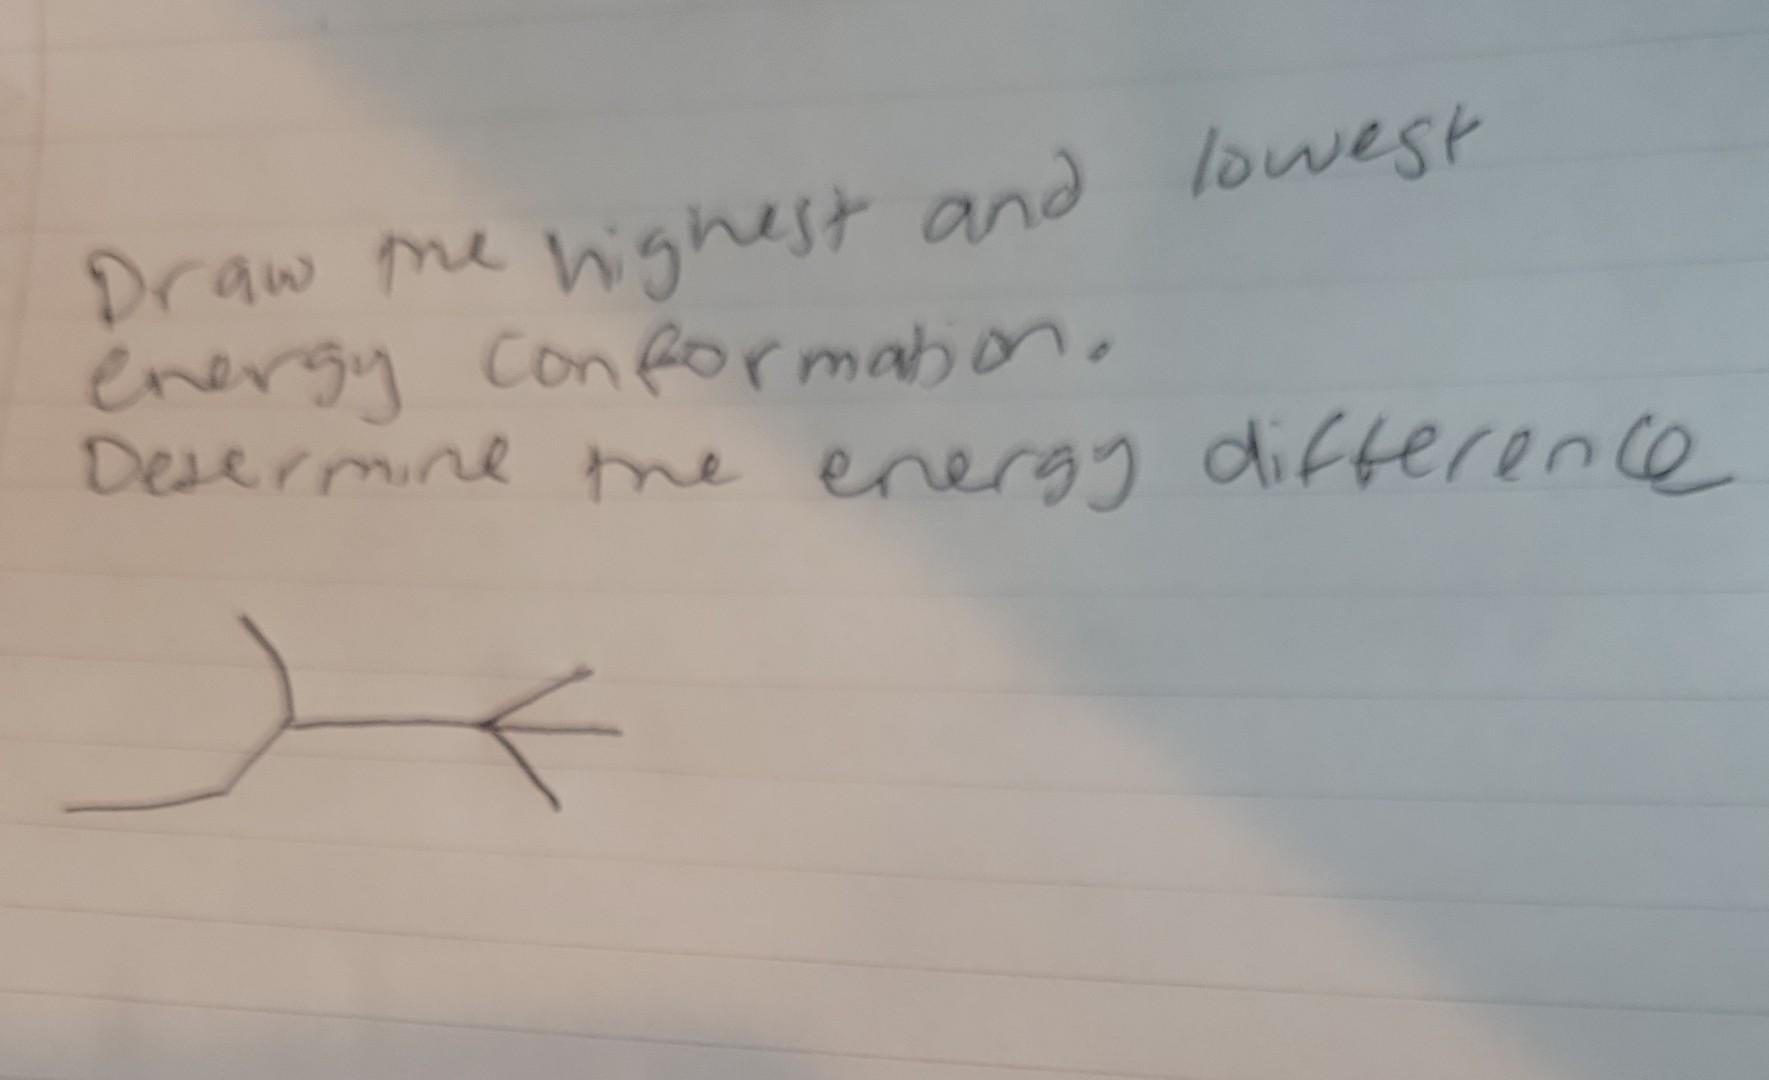 Draw the highest and lowest
energy conformation.
Determine the energy difference